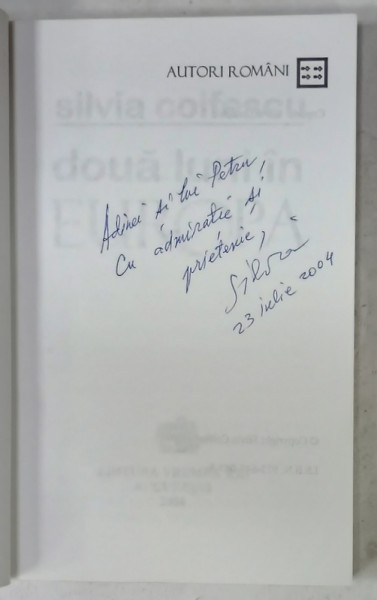 AUTORI ROMÂNI
silvia colfescu
două luni în
EUROPA
Adinei și lui Petru,
Cu admirație și
prietenie,
Silvia
23 iulie 2004